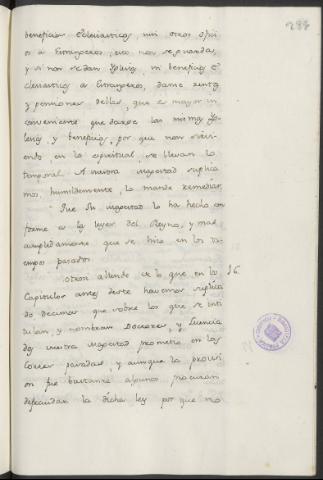 288
beneficios Eclesiasticos, nin otros ofici
os a Estrangeros, esto non se guarda,
y si non se dan Yglesias, ni beneficios E
clesiasticos a Estrangeros, danse rentas
y pensiones dellas, que es mayor in
conveniente que darse las mismas Ygl
lesias, y beneficios, por que non sirvi
endo en lo espiritual, se llevan lo
temporal. A vuestra magestad suplica
mos, humildemente, lo mande remediar.
Que Su magestad lo ha hecho con
forme a las leyes del Reyno, y mas
cumplidamente que se hizo en los ti
empos pasados.
Otrosi allende de lo que en los 36.
Capitulos antes deste havemos suplica
do decimos que sobre los que se inti
tulan, y nombran Doctores, y Licencia
dos vuestra magestad prometio en las
Cortes pasadas, y aunque la provisi
on fue bastante algunos procuran
defraudar la dicha ley por que no